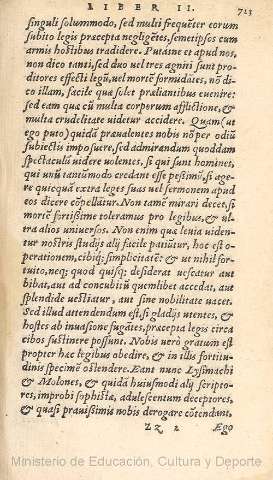 LIBER II.
723
singuli solummodo, sed multi frequēter eorum
subito legis præcepta negligētes, semetipsos cum
armis hostibus tradidere. Putasne et apud nos,
non dico tanti, sed duo vel tres agniti sunt pro-
ditores effecti legū, vel mortē formidātes, nō di-
co illam, facile quæ solet præliantibus euenire:
sed eam quæ cū multa corporum afflictione, &
multa crudelitate videtur accidere. Quam (ut
ego puto) quidā præualentes nobis nō per odiū
subiectis imposuere, sed admirandum quoddam
spectaculū videre volentes, si qui sunt homines,
qui unū tantūmodo credant esse pessimū, si age-
re quicquā extra leges suas vel sermonem apud
eos dicere cōpellātur. Non tamē mirari decet, si
mortē fortissime toleramus pro legibus, & ul-
tra alios universos. Non enim quæ leuia viden-
tur nostris studijs alij facile patiūtur, hoc est o-
perationem, cibiq; simplicitatē: & ut nihil for-
tuito, neq; quod quisq; desiderat uescatur aut
bibat, aut ad concubitū quemlibet accedat, aut
splendide uestiatur, aut sine nobilitate uacet.
Sed illud attendendum est, si gladijs utentes, &
hostes ab inuasione fugātes, præcepta legis circa
cibos sustinere possunt. Nobis uerò gratum est
propter hæc legibus obedire, & in illis fortitu-
dinis specimē ostendere. Eant nunc Lysimachi
& Molones, & quidā huiusmodi alij scripto-
res, improbi sophistæ, adulescentum deceptores,
& quasi prauissimis nobis derogare cōtendant.
Zz 2 Ego
Ministerio de Educación, Cultura y Deporte